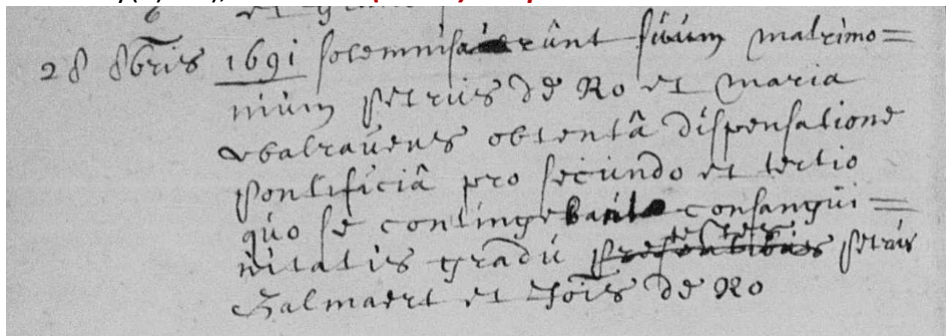 28 8bris 1691 solemnisarunt suum matrimo=
nium petrus de Ro et maria
obtentâ dispensatione
pontificiâ pro secundo et tertio
quo se contingebant consangui=
nitatis gradu testes petrus
et Jois de Ro